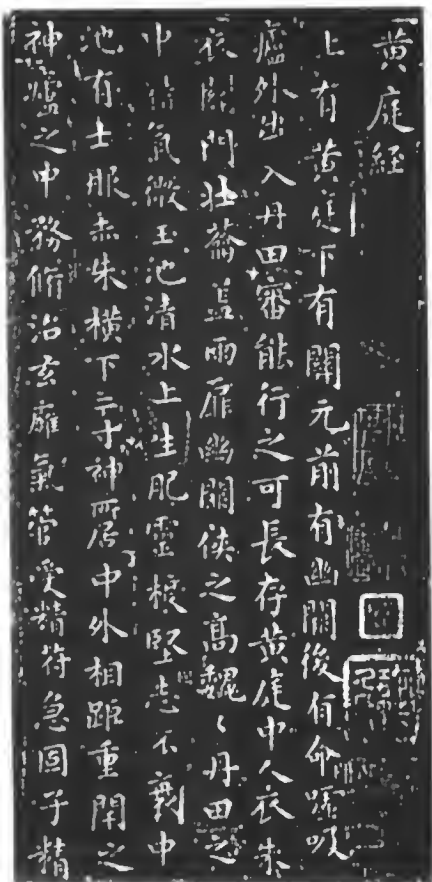 黄庭経
上有黄庭下有關元前有幽關後有命噓吸
廬外出入丹田審能行之可長存黄庭中人衣朱
衣關門壯蘥蓋兩扉幽關侠之高魏〻丹田之
中精氣微玉池清水上生肥靈根堅志不衰中
池有士服赤朱橫下三寸神所居中外相距重閇之
神廬之中務脩治玄廱氣管受精符急固子精